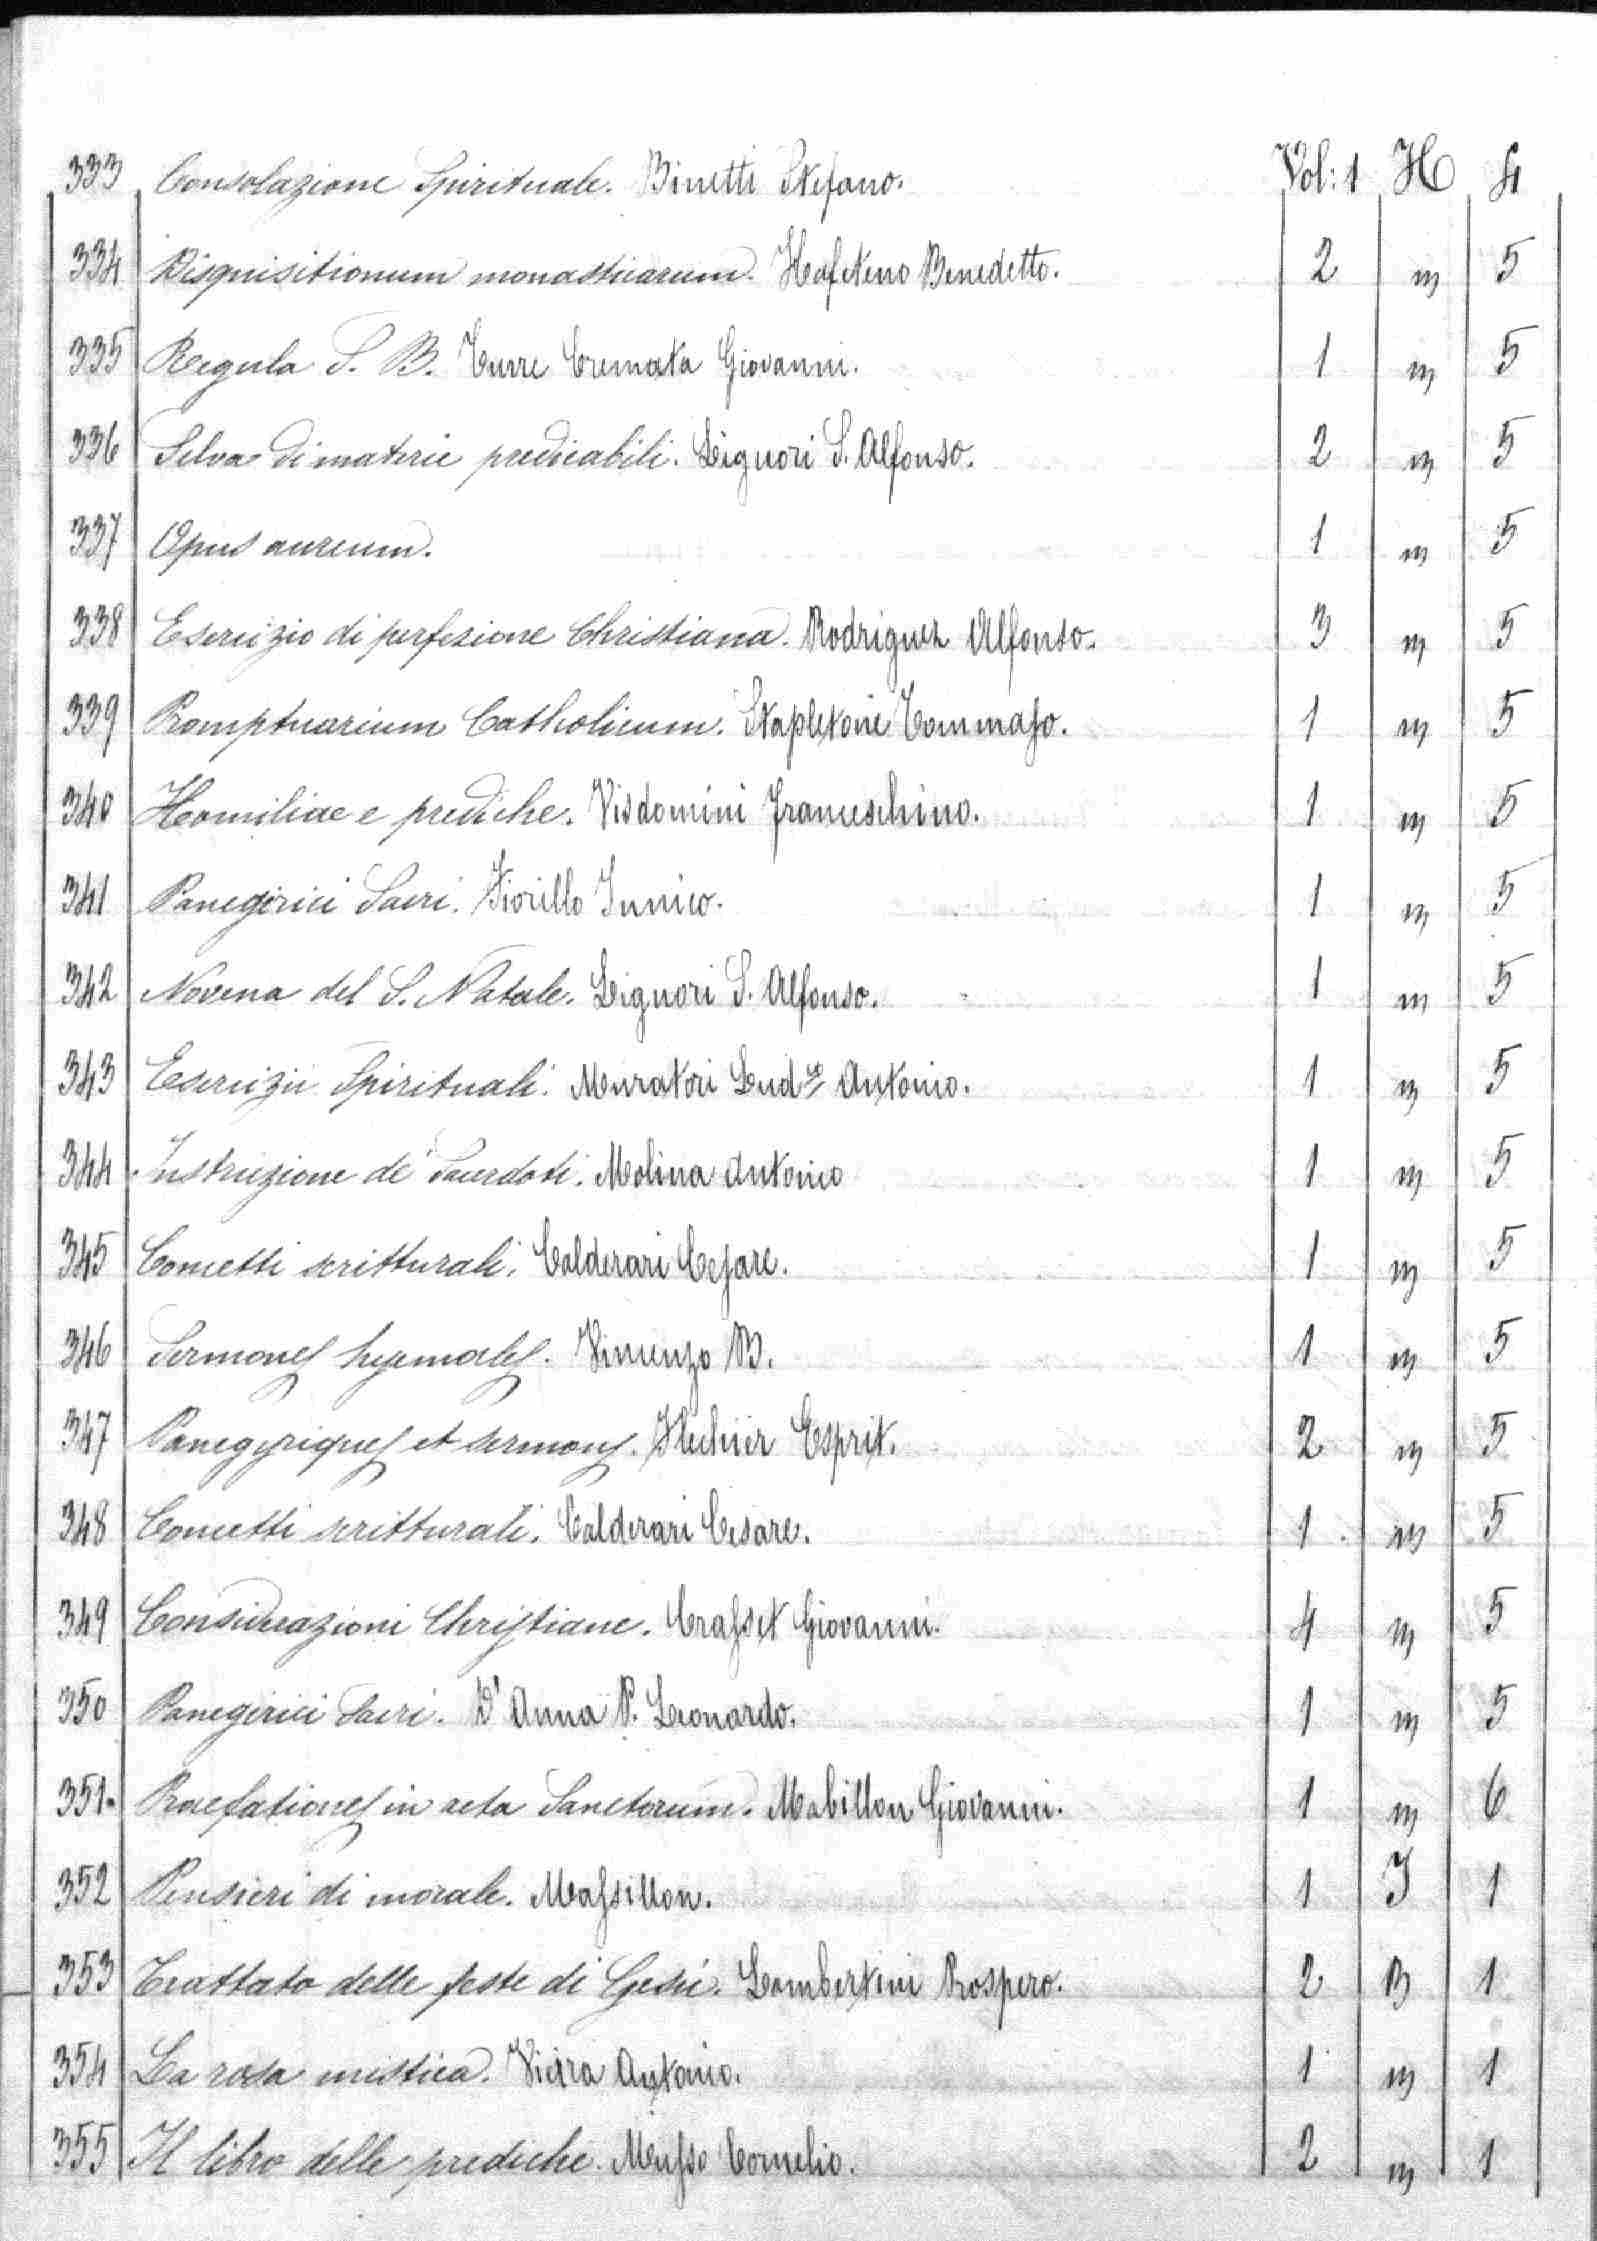 333 Consolazione Spirituale. Binetti Stefano. Vol: 1 H 4
334 Disquisitionum monasticarum. Hafteno Benedetto. 2 m 5
335 Regula S. B. Turre Cremata Giovanni. 1 m 5
336 Selva di materie predicabili. Liguori S. Alfonso. 2 m 5
337 Opus aureum. 1 m 5
338 Esercizio di perfezione Christiana. Rodriguez Alfonso. 3 m 5
339 Promptuarium Catholicum. Stapletoni Tommaso. 1 m 5
340 Homiliae e prediche. Visdomini Franceschino. 1 m 5
341 Panegirici Sacri. Fiorillo Innico. 1 m 5
342 Novena del S. Natale. Liguori S. Alfonso. 1 m 5
343 Esercizii Spirituali. Muratori Lud.co Antonio. 1 m 5
344 Instruzione de' Sacerdoti. Molina Antonio 1 m 5
345 Concetti scritturali. Calderari Cesare. 1 m 5
346 Sermones hyemales. Vincenzo B. 1 m 5
347 Panegyriques et sermons. Flechier Esprit. 2 m 5
348 Concetti scritturali. Calderari Cesare. 1 m 5
349 Considerazioni Christiane. Crasset Giovanni. 4 m 5
350 Panegirici Sacri. D'Anna P. Leonardo. 1 m 5
351. Praefationes in acta Sanctorum. Mabillon Giovanni. 1 m 6
352 Pensieri di morale. Massillon. 1 I 1
353 Trattato delle feste di Gesù. Lambertini Prospero. 2 B 1
354 La rosa mistica. Vieira Antonio. 1 m 1
355 Il libro delle prediche. Musso Cornelio. 2 m 1